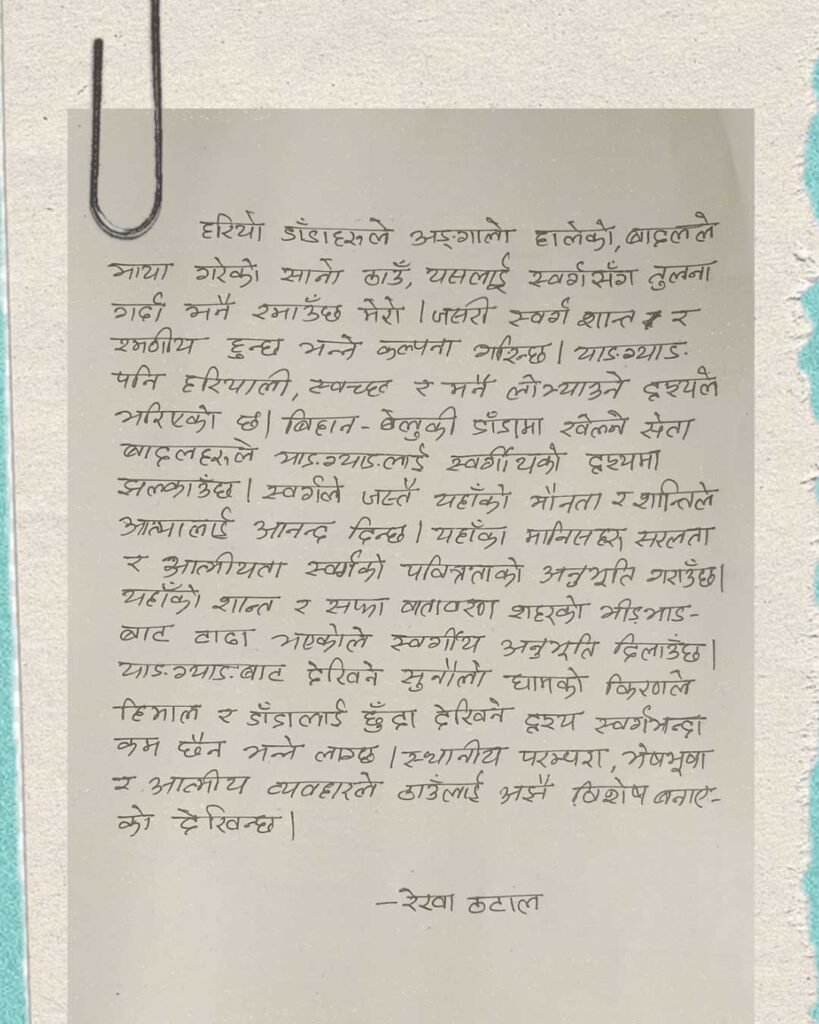 हरियो डाँडाहरुले अङ्गालो हालेको, बादलले
माया गरेको सानो ठाउँ, यसलाई स्वर्गसँग तुलना
गर्दा मनै रमाउँछ मेरो । जसरी स्वर्ग शान्त र
रमणीय हुन्छ भन्ने कल्पना गरिन्छ । याङग्याङ
पनि हरियाली, स्वच्छ र मनै लोभ्याउने दृश्यले
भरिएको छ । बिहान - बेलुकी डाँडामा खेल्ने सेता
बादलहरुले याङग्याङलाई स्वर्गीयको दृश्यमा
झल्काउँछ । स्वर्गले जस्तै यहाँको मौनता र शान्तिले
आत्मालाई आनन्द दिन्छ । यहाँका मानिसहरु सरलता
र आत्मीयता स्वर्गको पवित्रताको अनुभूति गराउँछ ।
यहाँको शान्त र सफा वातावरण शहरको भीडभाड-
बाट टाढा भएकोले स्वर्गीय अनुभूति दिलाउँछ ।
याङग्याङबाट देखिने सुनौलो घामको किरणले
हिमाल र डाँडालाई छुँदा देखिने दृश्य स्वर्गभन्दा
कम छैन भन्ने लाग्छ । स्थानीय परम्परा, भेषभूषा
र आत्मीय व्यवहारले ठाउँलाई अझै विशेष बनाए-
को देखिन्छ ।
- रेखा कटाल